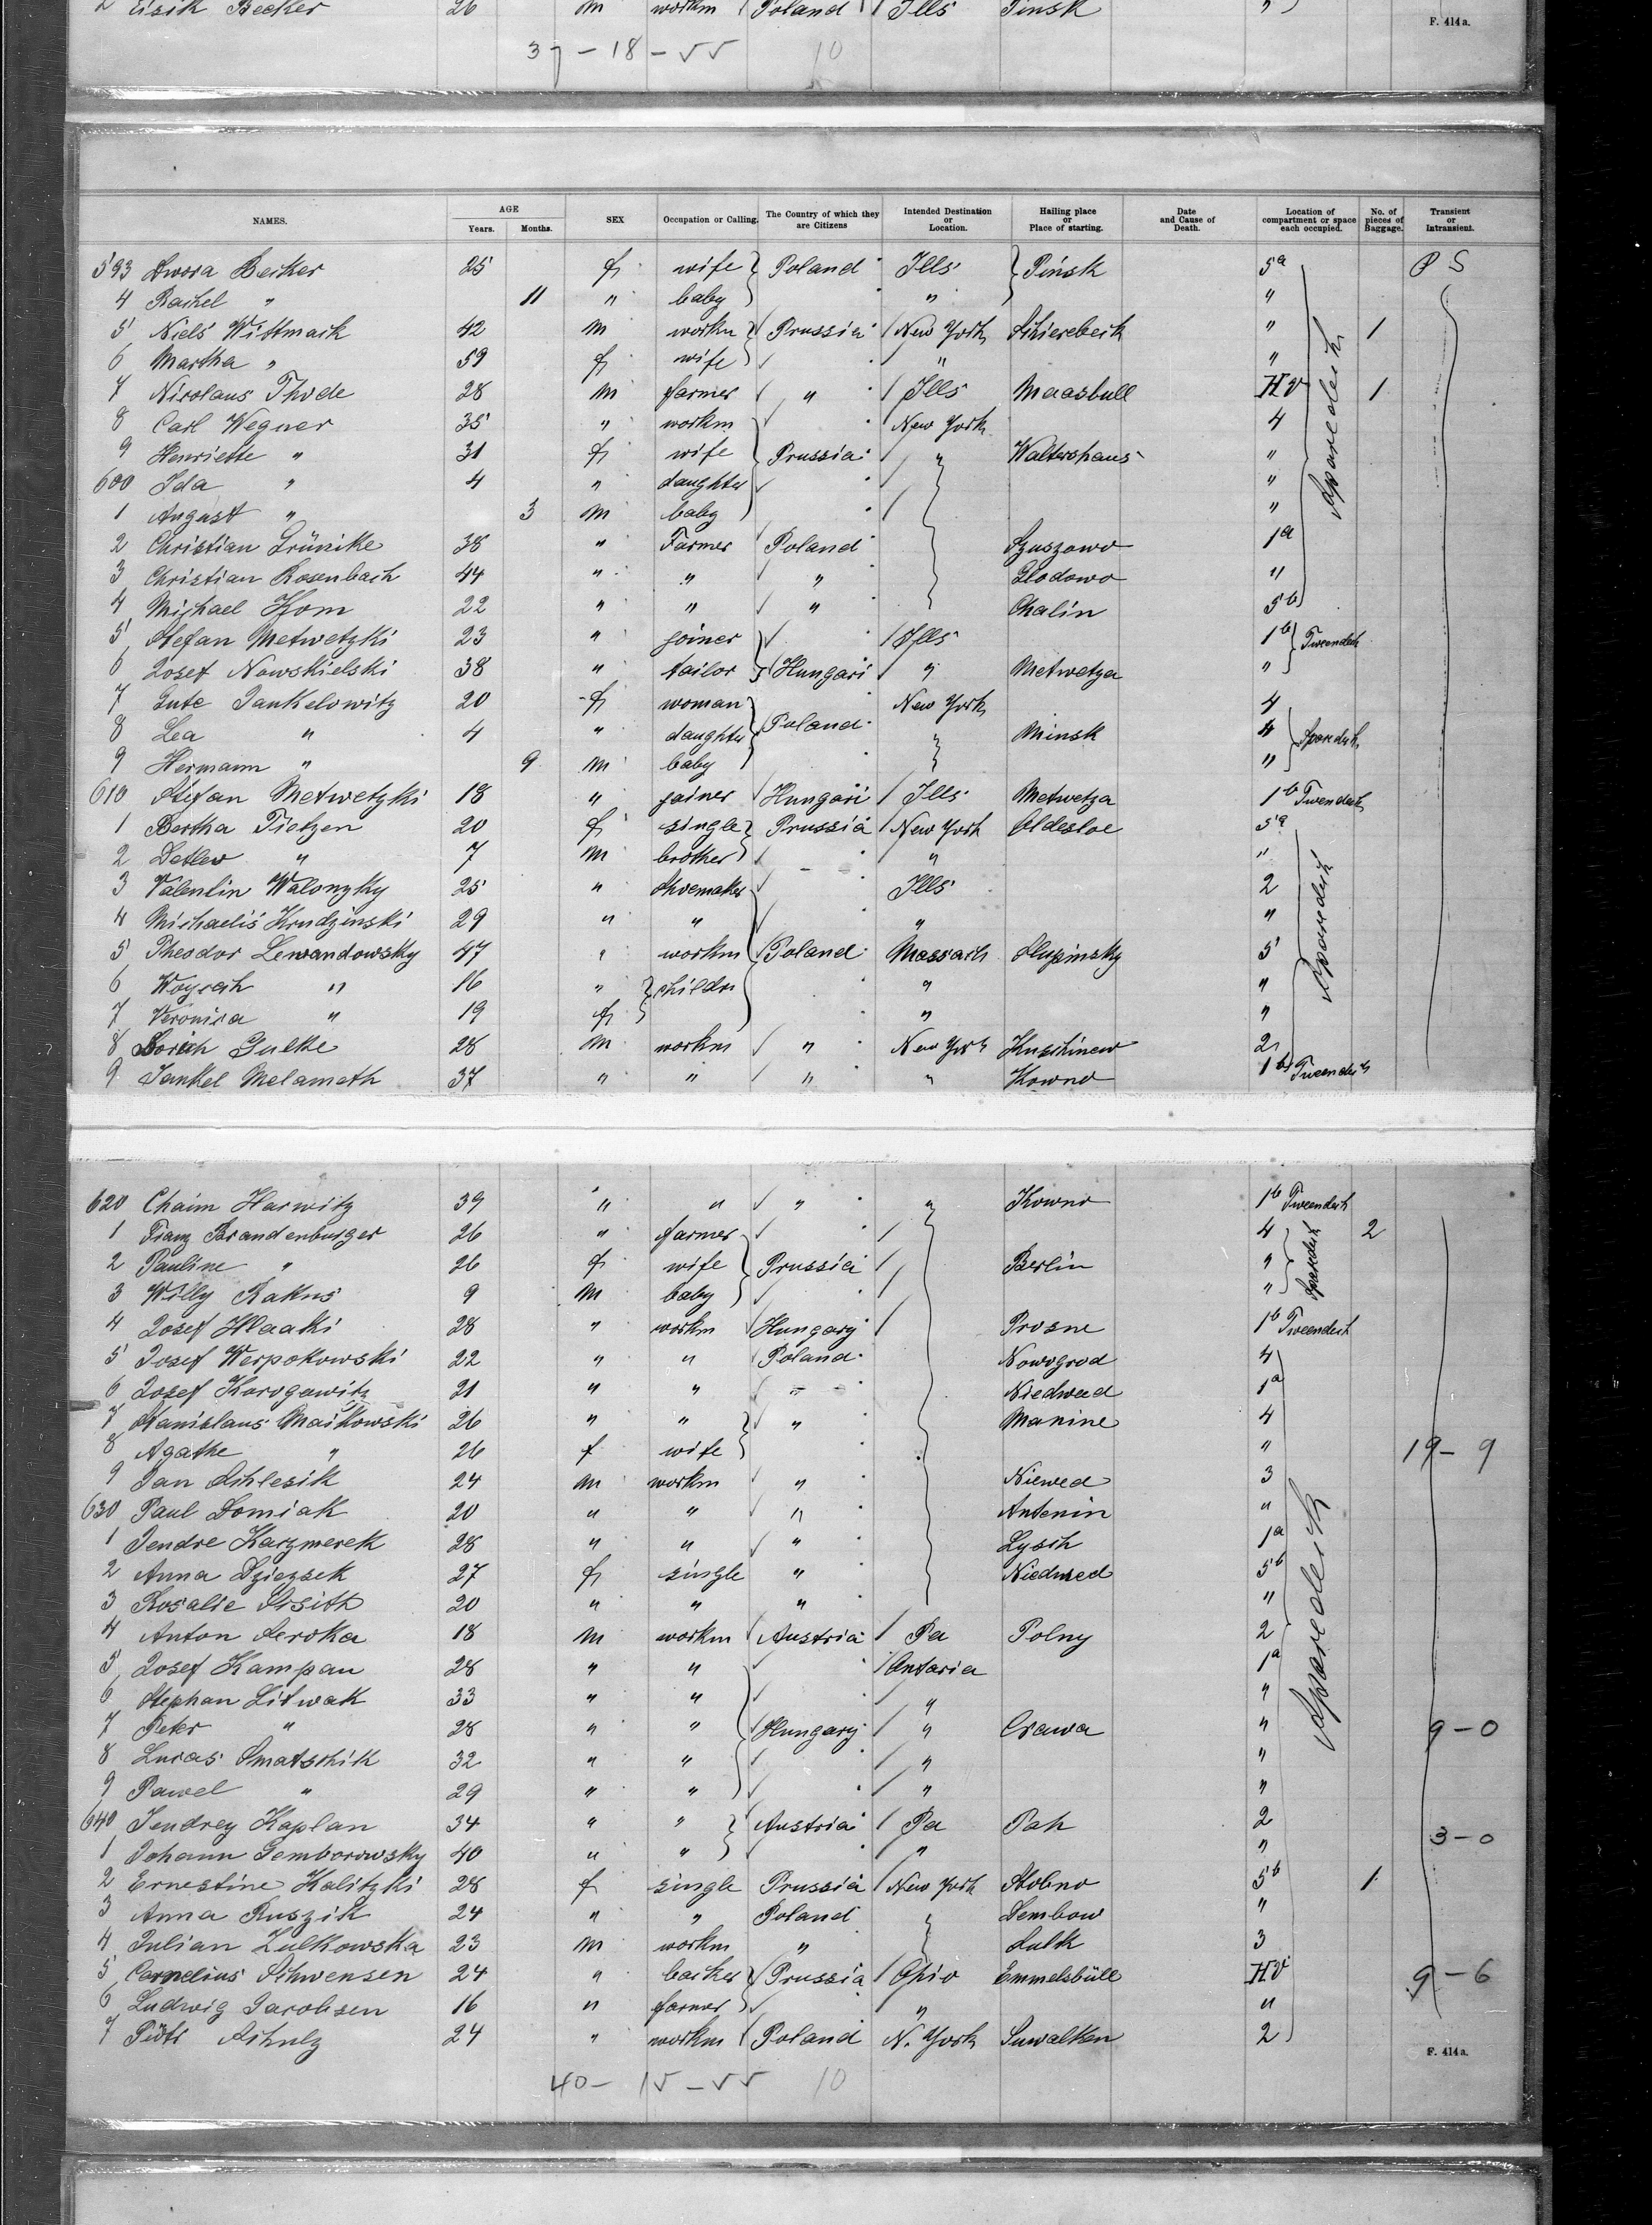 2 Eisik Becker 26 m workm Poland Ills Pinsk "
F. 414a.
37-18-55 10
NAMES. AGE Years. Months. SEX Occupation or Calling. The Country of which they are Citizens Intended Destination or Location. Hailing place or Place of starting. Date and Cause of Death. Location of compartment or space each occupied. No. of pieces of Baggage. Transient or Intransient.
593 Dwora Becker 25 f wife Poland Ills Pinsk 5a P S
4 Rachel " 11 " baby " "
5 Niels Wittmack 42 m workm Prussia New York Schierebeck " 1
6 Martha " 59 f wife " "
7 Nicolaus Thode 28 m farmer " Ills Maasbull HV 1
8 Carl Wegner 35 " workm New York 4
9 Henriette " 31 f wife Prussia " Waltershaus "
600 Ida " 4 " daughter "
1 August " 3 m baby "
2 Christian Grünike 38 " Farmer Poland Szuszowo 1a
3 Christian Rosenbach 44 " " " Zlodowo "
4 Michael Kom 22 " " " Chalin 5b
Sparedeck
5 Stefan Metwetzki 23 " joiner Ills 1b Tweendeck
6 Josef Nowskielski 38 " tailor Hungari " Metwetza "
7 Gute Jankelowitz 20 f woman New York 4
8 Lea " 4 " daughter Poland " Minsk 4 Sparedeck
9 Hermann " 9 m baby "
610 Stefan Metwetzki 18 " joiner Hungari Ills Metwetza 1b Twendeck
1 Bertha Tietzen 20 f single Prussia New York Oldesloe 5a
2 Detlev " 7 m brother " "
3 Valentin Walonzky 25 " Shoemaker Ills 2
4 Michaelis Krudzinski 29 " " " "
5 Theodor Lewandowsky 47 " workm Poland Massach Slupinsky 5
6 Woycech " 16 " childrn " "
7 Veronica " 19 f " "
8 Borich Gulke 28 m workm " New York Kuschinew 2
Sparedeck
9 Jankel Melameth 37 " " " " Kowno 1b Tweendeck
620 Chaim Harwitz 39 " " " " Kowno 1b Tweendeck
1 Franz Brandenburger 26 " farmer 4 2
2 Pauline " 26 f wife Prussia Berlin "
3 Willy Rakus 9 m baby "
Sparedeck
4 Josef Hlaaki 28 " workm Hungary Prosne 1b Tweendeck
5 Josef Werpokowski 22 " " Poland Nowogrod 4
6 Josef Korogewitz 21 " " " Niedwed 1a
7 Stanislaus Maikowski 26 " " " Manine 4
8 Agathe " 26 f wife " 19-9
9 Jan Schlesik 24 m workm " Niewed 3
630 Paul Domiak 20 " " " Antenin "
1 Jendre Karzmerek 28 " " " Lysih 1a
2 Anna Dziezsek 27 f single " Niedwed 5b
3 Rosalie Sisith 20 " " " "
4 Anton Seroka 18 m workm Austria Pa Polny 2
5 Josef Kampan 28 " " Ontaria 1a
6 Stephan Litwak 33 " " " "
7 Peter " 28 " " Hungary " Crawa " 9-0
8 Lucas Smatschik 32 " " " "
9 Pawel " 29 " " " "
Sparedeck
640 Jendrey Kaplan 34 " " Austria Pa Pah 2
1 Johann Gemborowsky 40 " " " " 3-0
2 Ernestine Kalitzki 28 f single Prussia New York Stolno 5b 1
3 Anna Ruszik 24 " " Poland Dembow "
4 Julian Zulkowska 23 m workm " Lulk 3
5 Cornelius Schwensen 24 " backer Prussia Ohio Emmelsbüll HV 9-6
6 Ludwig Jacobsen 16 " farmer " "
7 Piotr Schulz 24 " workm Poland N. York Suwalken 2
F. 414a.
40-15-55 10